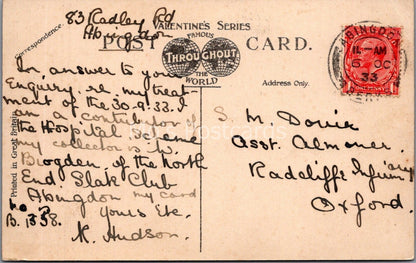 83 Radley Rd
Abingdon
VALENTINE'S SERIES
POST CARD.
FAMOUS
THROUGHOUT
THE
WORLD
Correspondence
Address Only.
Printed in Great Britain
ABINGDON
11-AM
6 OC
33
BERKS
In, answer to your
Enquiry. re. my treat
ment of the 30-9-33. I
am a contributor of
the Hospital Scheme
my collector is W.
Blogden, of the North
End. Slak Club
Abingdon my card
no is
B. 1358. yours Etc.
K. Hudson.
S. M. Dovie
Asst. Almoner.
Radcliffe Infirmary
Oxford.